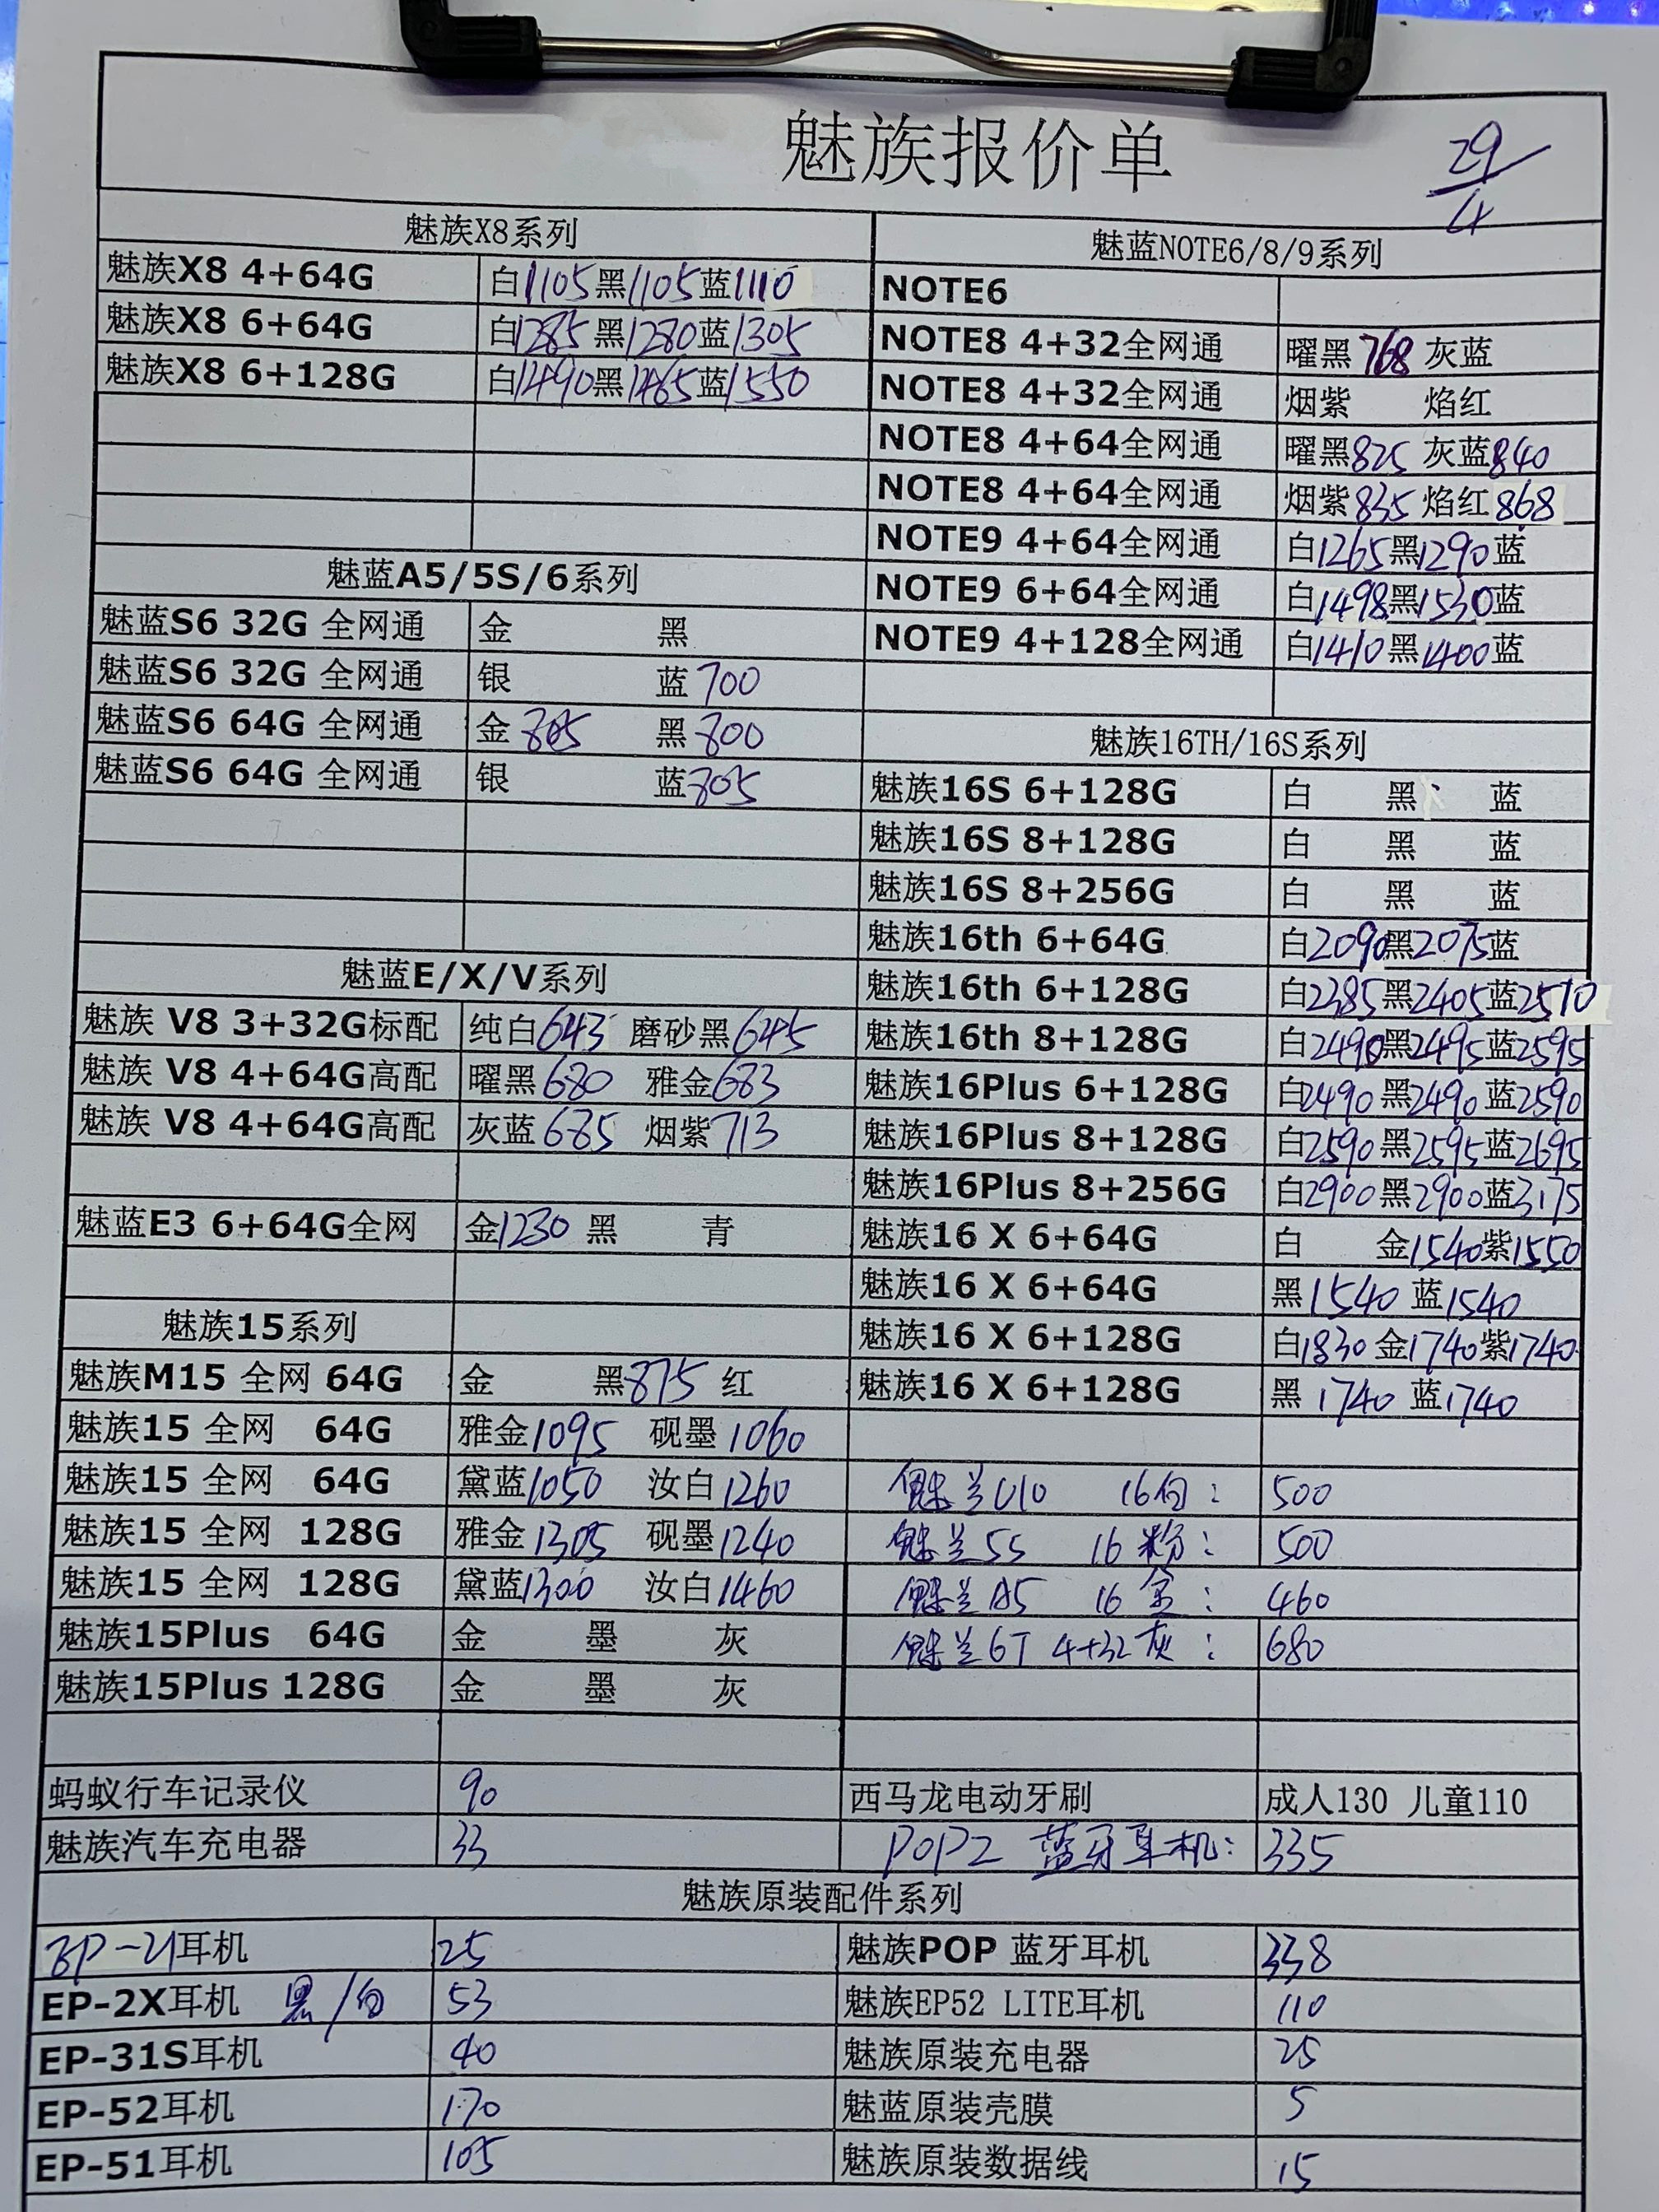 魅族报价单
29/4
魅族X8系列
魅族X8 4+64G 白1105 黑1105 蓝1110
魅族X8 6+64G 白1285 黑1280 蓝1305
魅族X8 6+128G 白1490 黑1465 蓝1550
魅蓝A5/5S/6系列
魅蓝S6 32G 全网通 金 黑
魅蓝S6 32G 全网通 银 蓝700
魅蓝S6 64G 全网通 金805 黑800
魅蓝S6 64G 全网通 银 蓝805
魅蓝E/X/V系列
魅族 V8 3+32G标配 纯白643 磨砂黑645
魅族 V8 4+64G高配 曜黑680 雅金683
魅族 V8 4+64G高配 灰蓝685 烟紫713
魅蓝E3 6+64G全网 金1230 黑 青
魅族15系列
魅族M15 全网 64G 金 黑875 红
魅族15 全网 64G 雅金1095 砚墨1060
魅族15 全网 64G 黛蓝1050 汝白1260
魅族15 全网 128G 雅金1305 砚墨1240
魅族15 全网 128G 黛蓝1300 汝白1460
魅族15Plus 64G 金 墨 灰
魅族15Plus 128G 金 墨 灰
魅蓝NOTE6/8/9系列
NOTE6
NOTE8 4+32全网通 曜黑768 灰蓝
NOTE8 4+32全网通 烟紫 焰红
NOTE8 4+64全网通 曜黑825 灰蓝840
NOTE8 4+64全网通 烟紫835 焰红868
NOTE9 4+64全网通 白1265 黑1290 蓝
NOTE9 6+64全网通 白1498 黑1530 蓝
NOTE9 4+128全网通 白1410 黑1400 蓝
魅族16TH/16S系列
魅族16S 6+128G 白 黑 蓝
魅族16S 8+128G 白 黑 蓝
魅族16S 8+256G 白 黑 蓝
魅族16th 6+64G 白2090 黑2075 蓝
魅族16th 6+128G 白2385 黑2405 蓝2510
魅族16th 8+128G 白2490 黑2495 蓝2595
魅族16Plus 6+128G 白2490 黑2490 蓝2590
魅族16Plus 8+128G 白2590 黑2595 蓝2695
魅族16Plus 8+256G 白2900 黑2900 蓝3175
魅族16 X 6+64G 白 金1540 紫1550
魅族16 X 6+64G 黑1540 蓝1540
魅族16 X 6+128G 白1830 金1740 紫1740
魅族16 X 6+128G 黑1740 蓝1740
魅兰U10 16白： 500
魅兰5S 16粉： 500
魅兰A5 16金： 460
魅兰6T 4+32灰： 680
蚂蚁行车记录仪 90 西马龙电动牙刷 成人130 儿童110
魅族汽车充电器 33 POP2 蓝牙耳机： 335
魅族原装配件系列
EP-21耳机 25 魅族POP 蓝牙耳机 338
EP-2X耳机 黑/白 53 魅族EP52 LITE耳机 110
EP-31S耳机 40 魅族原装充电器 25
EP-52耳机 170 魅蓝原装壳膜 5
EP-51耳机 105 魅族原装数据线 15